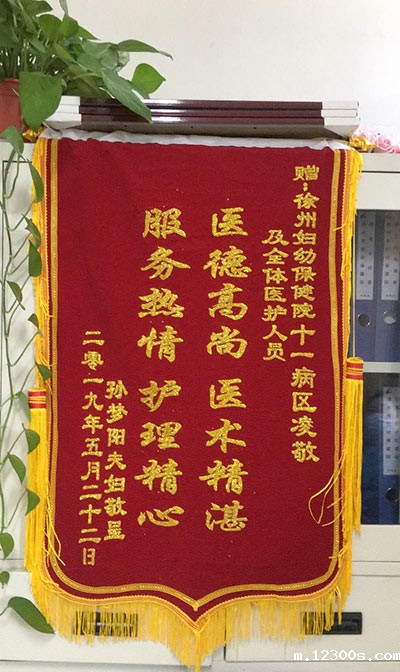 赠:徐州妇幼保健院十一病区凌敬
及全体医护人员
医德高尚 医术精湛
服务热情 护理精心
孙梦阳夫妇敬呈
二零一九年五月二十二日
m.12300s.com